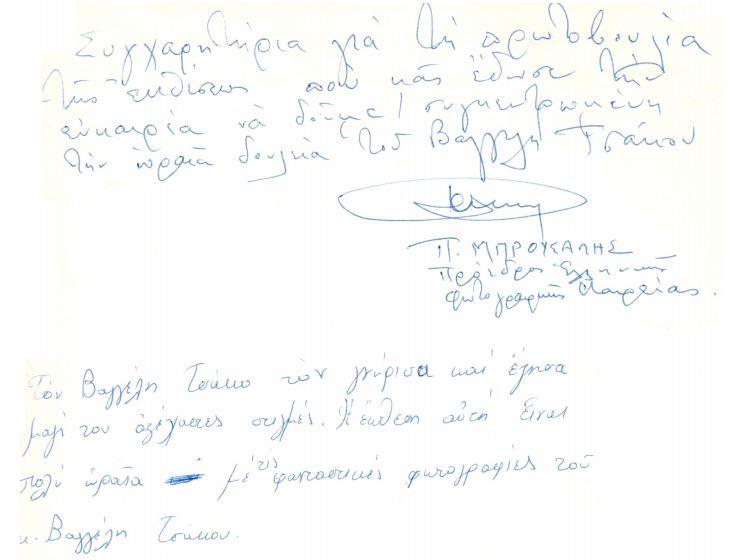 Συγχαρητήρια γιά τή πρωτοβουλία
τῆς ἐκθέσεως πού μᾶς ἔδωσε τήν
εὐκαιρία νά δοῦμε συγκεντρωμένη
τήν ὡραία δουλειά τοῦ Βαγγέλη Τσάκου
Π. ΜΠΡΟΥΣΑΛΗΣ
Πρόεδρος Ἑλληνικῆς
Φωτογραφικῆς Ἑταιρείας.
Τόν Βαγγέλη Τσάκο τόν γνώρισα καί ἔζησα
μαζί του ἀξέχαστες στιγμές. Ἡ ἔκθεση αὐτή εἶναι
πολύ ὡραία μέ τίς φανταστικές φωτογραφίες τοῦ
κ. Βαγγέλη Τσάκου.